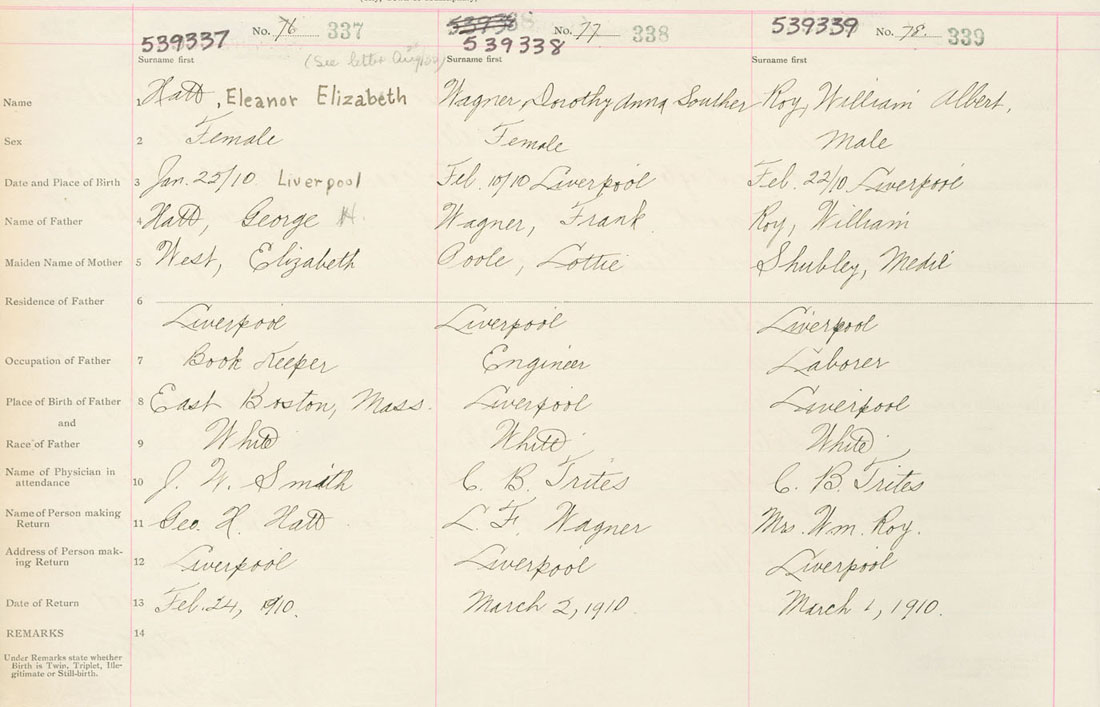 539337 No. 76 337 539338 No. 77 338 539339 No. 78. 339
539338
(See letter Aug
Surname first Surname first Surname first
Name 1 Hatt, Eleanor Elizabeth Wagner, Dorothy Anna Souther Roy, William Albert,
Sex 2 Female Female Male
Date and Place of Birth 3 Jan. 22/10. Liverpool Feb. 10/10 Liverpool Feb. 22/10 Liverpool
Name of Father 4 Hatt, George H. Wagner, Frank Roy, William
Maiden Name of Mother 5 West, Elizabeth Poole, Lottie Shubley, Medil
Residence of Father 6
Liverpool Liverpool Liverpool
Occupation of Father 7 Book Keeper Engineer Laborer
Place of Birth of Father 8 East Boston, Mass. Liverpool Liverpool
and
Race of Father 9 White White White
Name of Physician in
attendance 10 J. W. Smith C. B. Trites C. B. Trites
Name of Person making
Return 11 Geo. H. Hatt L. F. Wagner Mrs. Wm. Roy.
Address of Person mak-
ing Return 12 Liverpool Liverpool Liverpool
Date of Return 13 Feb. 24, 1910. March 2, 1910. March 1, 1910.
REMARKS 14
Under Remarks state whether
Birth is Twin, Triplet, Ille-
gitimate or Still-birth.